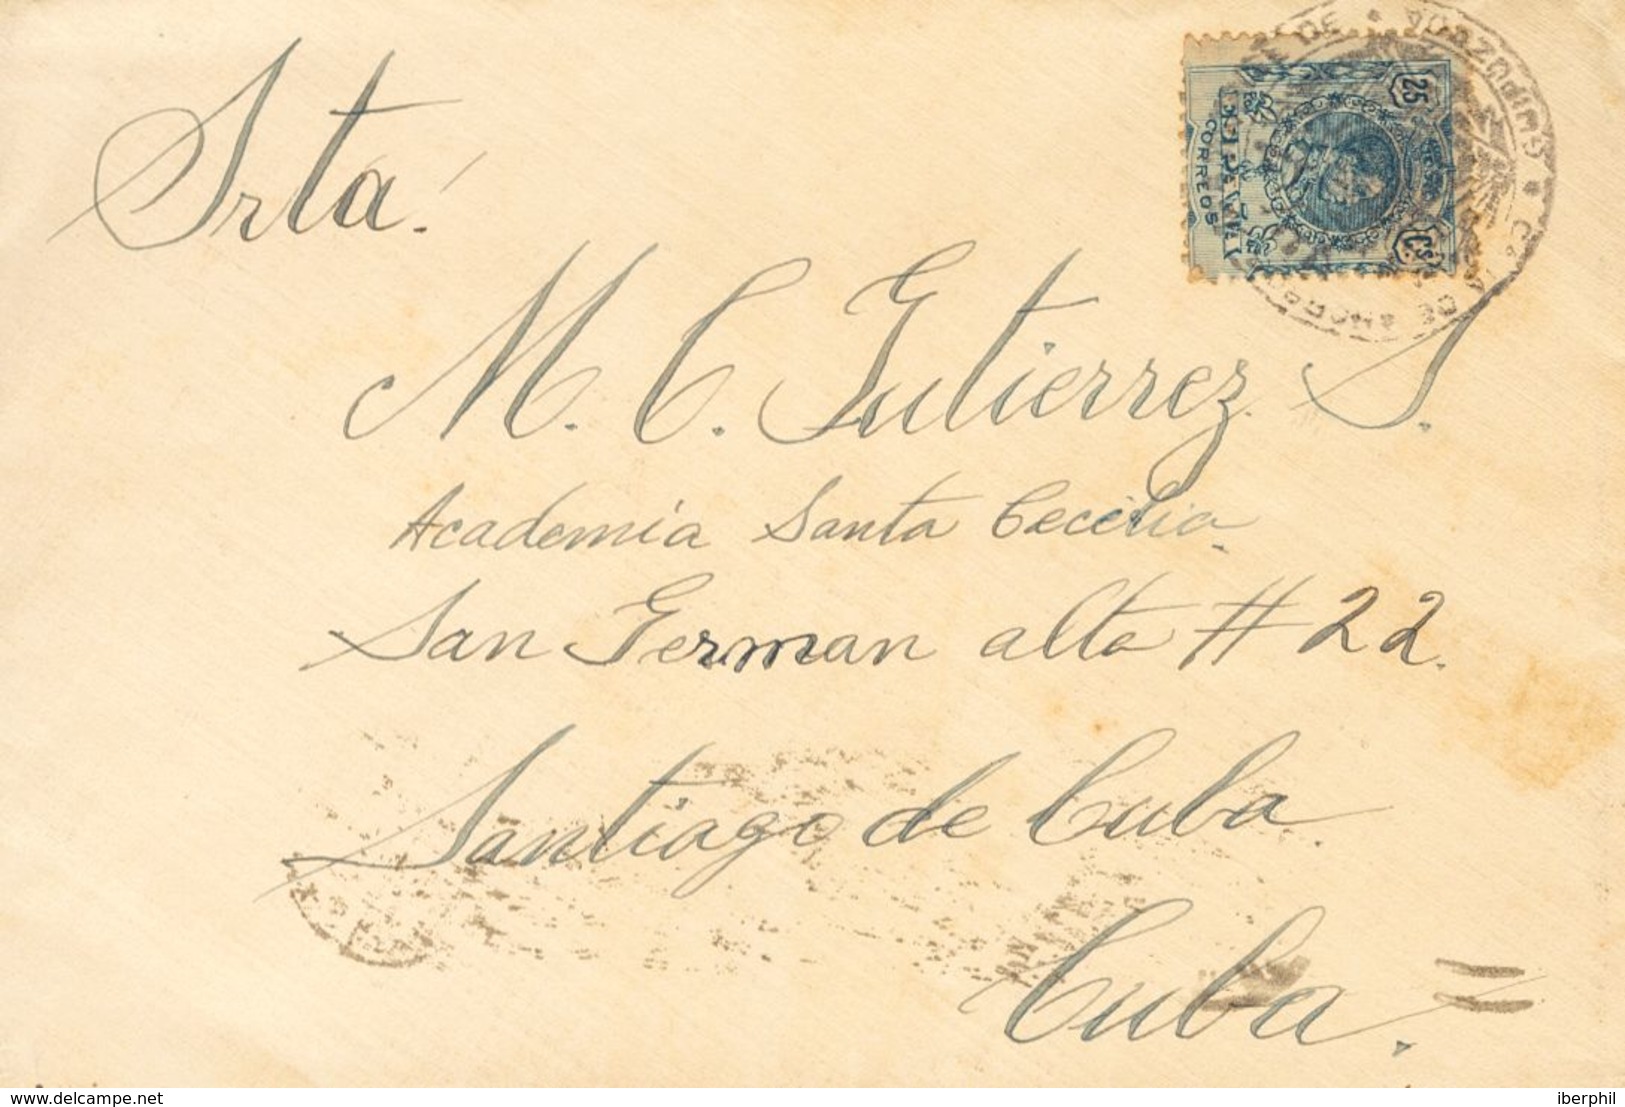 Srta.
M. C. Gutierrez S.
Academia Santa Cecilia.
San German alta # 22.
Santiago de Cuba.
Cuba.
25
Cs.
CORREOS
ESPAÑA
DE * GUIPUZCOA
iberphil